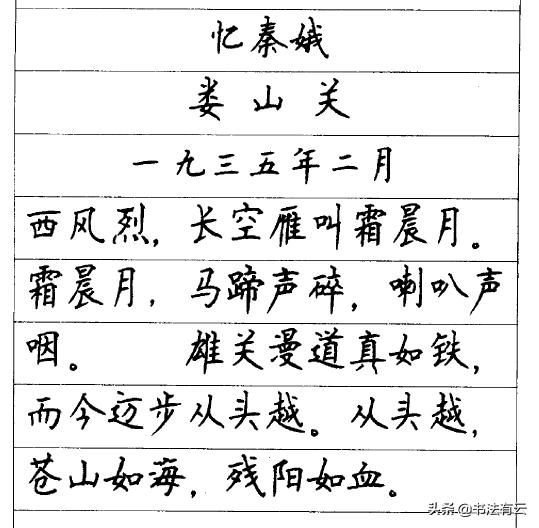 忆秦娥
娄山关
一九三五年二月
西风烈，长空雁叫霜晨月。
霜晨月，马蹄声碎，喇叭声
咽。 雄关漫道真如铁，
而今迈步从头越。从头越，
苍山如海，残阳如血。
头条@书法有云